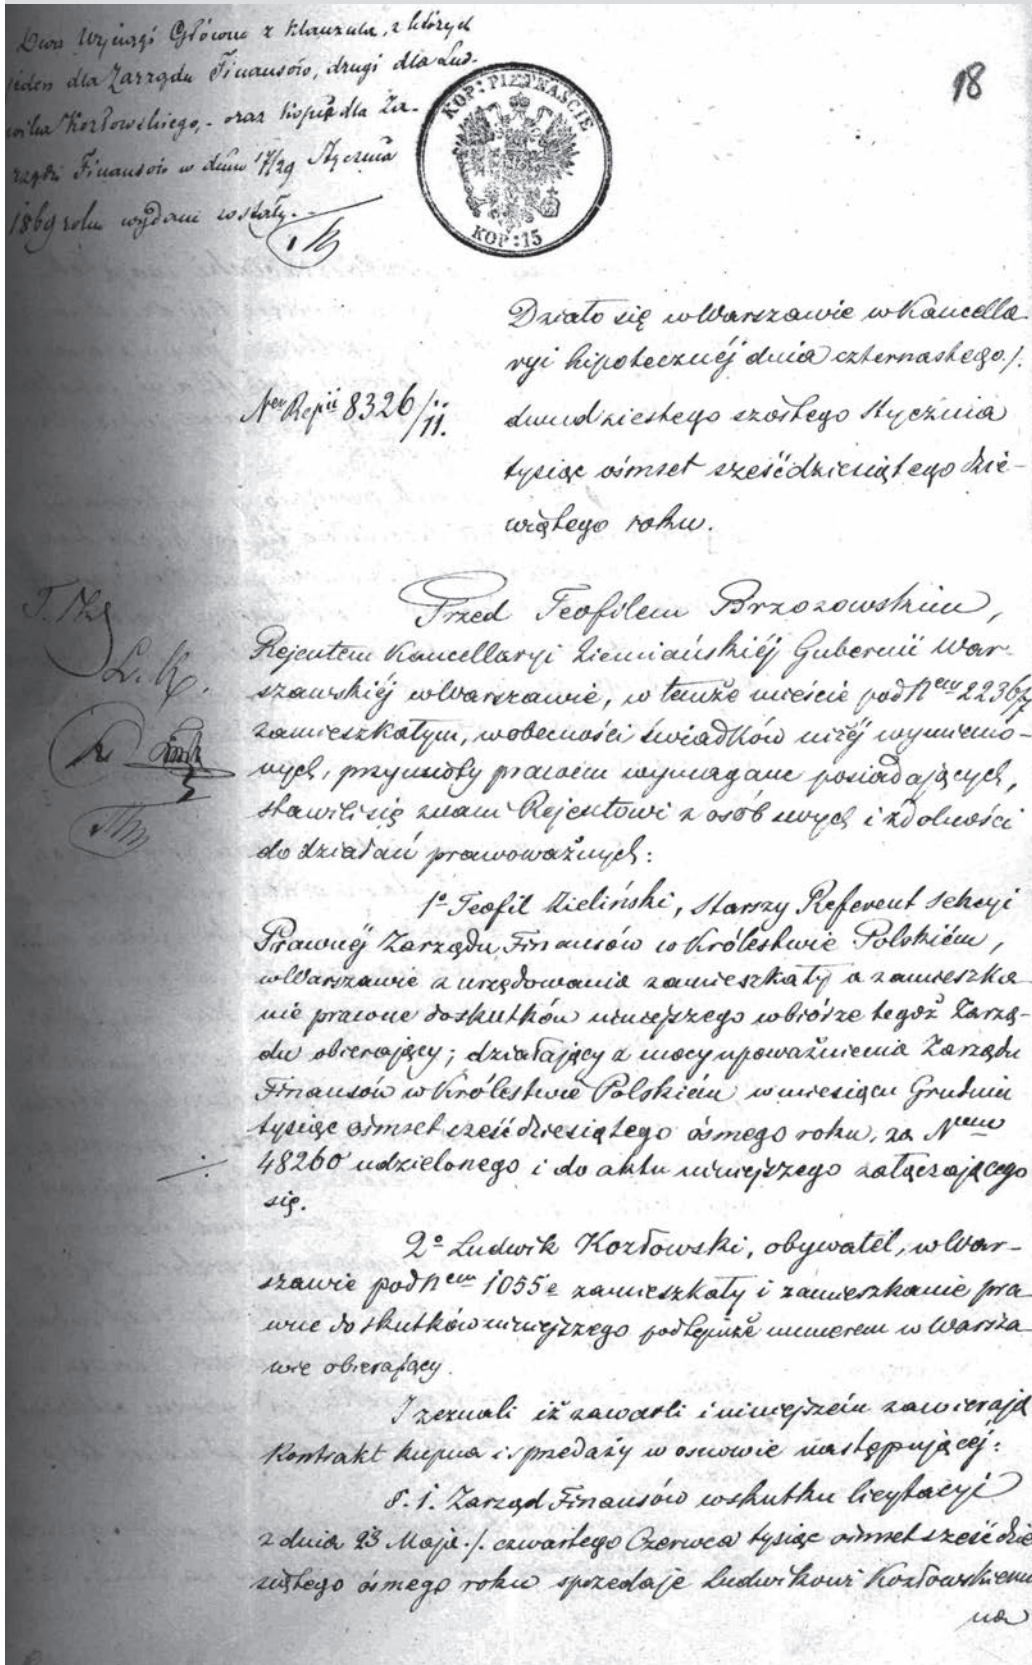 Dwa Wyciągi Główne z klauzulą, z których
jeden dla Zarządu Finansów, drugi dla Lud-
wika Kozłowskiego, - oraz kopia dla Za-
rządu Finansów w dniu 17/29 Stycznia
1869 roku wydane zostały. -
18
KOP: PIETNAŚCIE
KOP: 15
Działo się w Warszawie w Kancella-
ryi hipotecznéj dnia czternastego ./.
dwudziestego szóstego Stycznia
tysiąc ośmset sześćdziesiątego dzie-
wiątego roku.
Ner Repii 8326/11.
Przed Teofilem Brzozowskim,
Rejentem Kancellaryi Ziemiańskiéj Gubernii War-
szawskiéj w Warszawie, w temże mieście pod Nem 2236/7
zamieszkałym, w obecności świadków niżéj wymienio-
nych, przymioty prawem wymagane posiadających,
stawili się znani Rejentowi z osób swych i zdolności
do działań prawoważnych:
T. Z.
L. K.
1o Teofil Zieliński, Starszy Referent Sekcyi
Prawnéj Zarządu Finansów w Królestwie Polskiém,
w Warszawie z urzędowania zamieszkały a zamieszka-
nie prawne do skutków niniejszego w biórze tegoż Zarzą-
du obierający; działający z mocy upoważnienia Zarządu
Finansów w Królestwie Polskiém w miesiącu Grudniu
tysiąc ośmset sześćdziesiątego ósmego roku, za Nem
48260 udzielonego i do aktu niniejszego załączającego
się.
2o Ludwik Kozłowski, obywatel, w War-
szawie pod Nem 1055e zamieszkały i zamieszkanie pra-
wne do skutków niniejszego pod tymże numerem w Warsza-
wie obierający.
I zeznali iż zawarli i niniejszém zawierają
Kontrakt kupna i sprzedaży w osnowie następującéj:
§. 1. Zarząd Finansów w skutku licytacyi
z dnia 23 Maja ./. czwartego Czerwca tysiąc ośmset sześćdzie
siątego ósmego roku sprzedaje Ludwikowi Kozłowskiemu
na